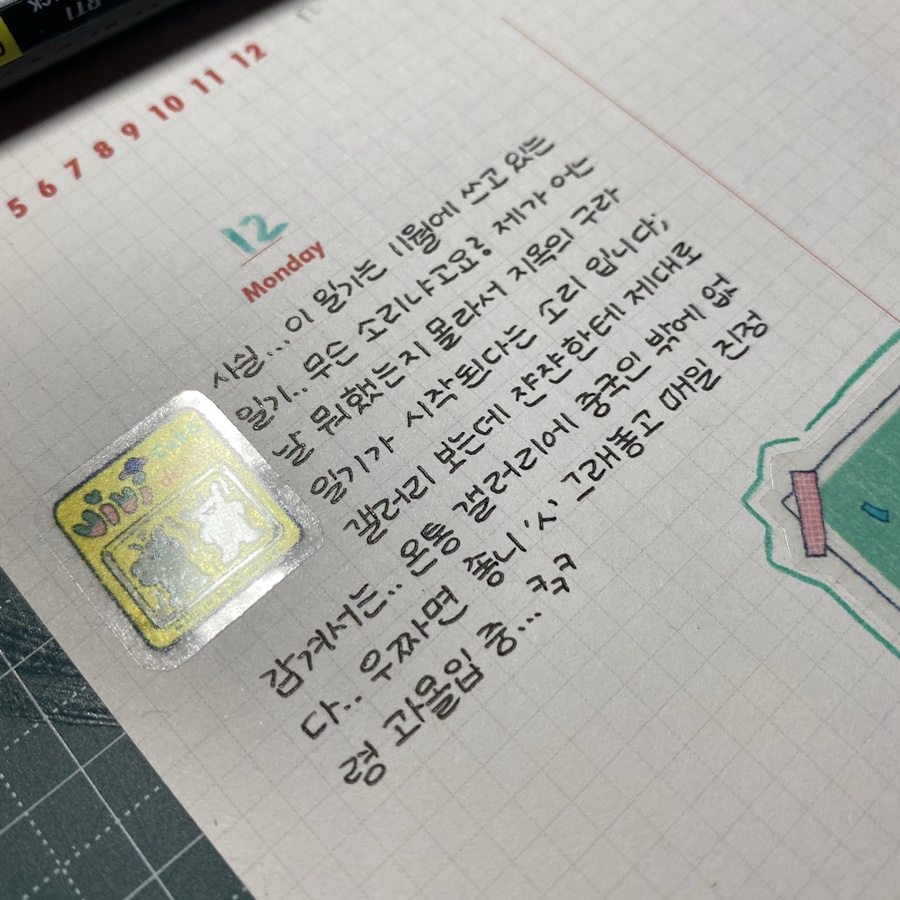 5 6 7 8 9 10 11 12
12
Monday
사실... 이 일기는 11월에 쓰고 있는
일기.. 무슨 소리냐고요? 제가 어는
날 뭐했는지 몰라서 지옥의 구라
일기가 시작된다는 소리 입니다;
갤러리 보는데 쟌쟌한테 제대로
감겨서는.. 온통 갤러리에 중국인 밖에 없
다.. 우짜면 좋니 'ㅅ' 그래놓고 매일 진정
령 과몰입 중... ㅋㅋㅋ